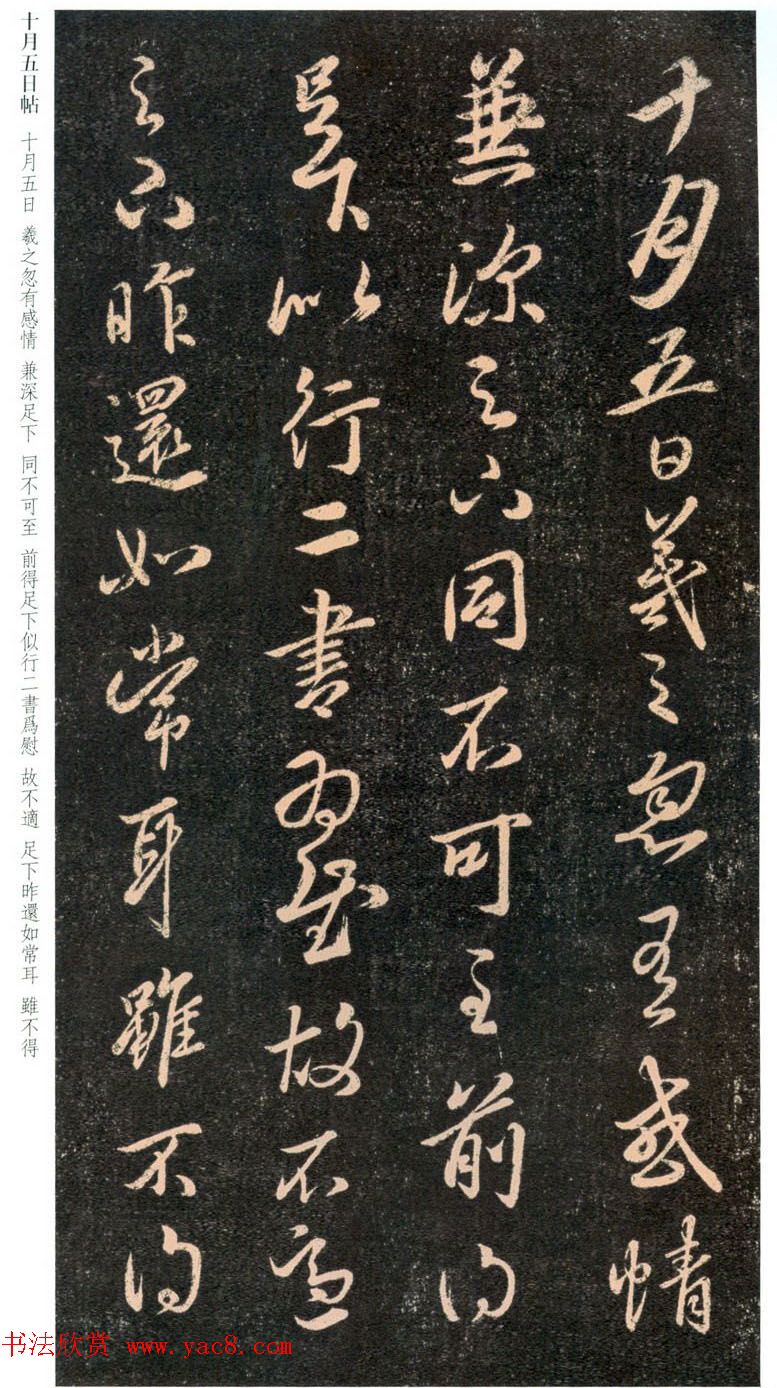 十月五日羲之忽有感情
兼深足下同不可至前得
足下以行二書為慰故不適
足下昨還如常耳雖不得
十月五日帖 十月五日 羲之忽有感情 兼深足下 同不可至 前得足下似行二書爲慰 故不適 足下昨還如常耳 雖不得
书法欣赏 www.yac8.com